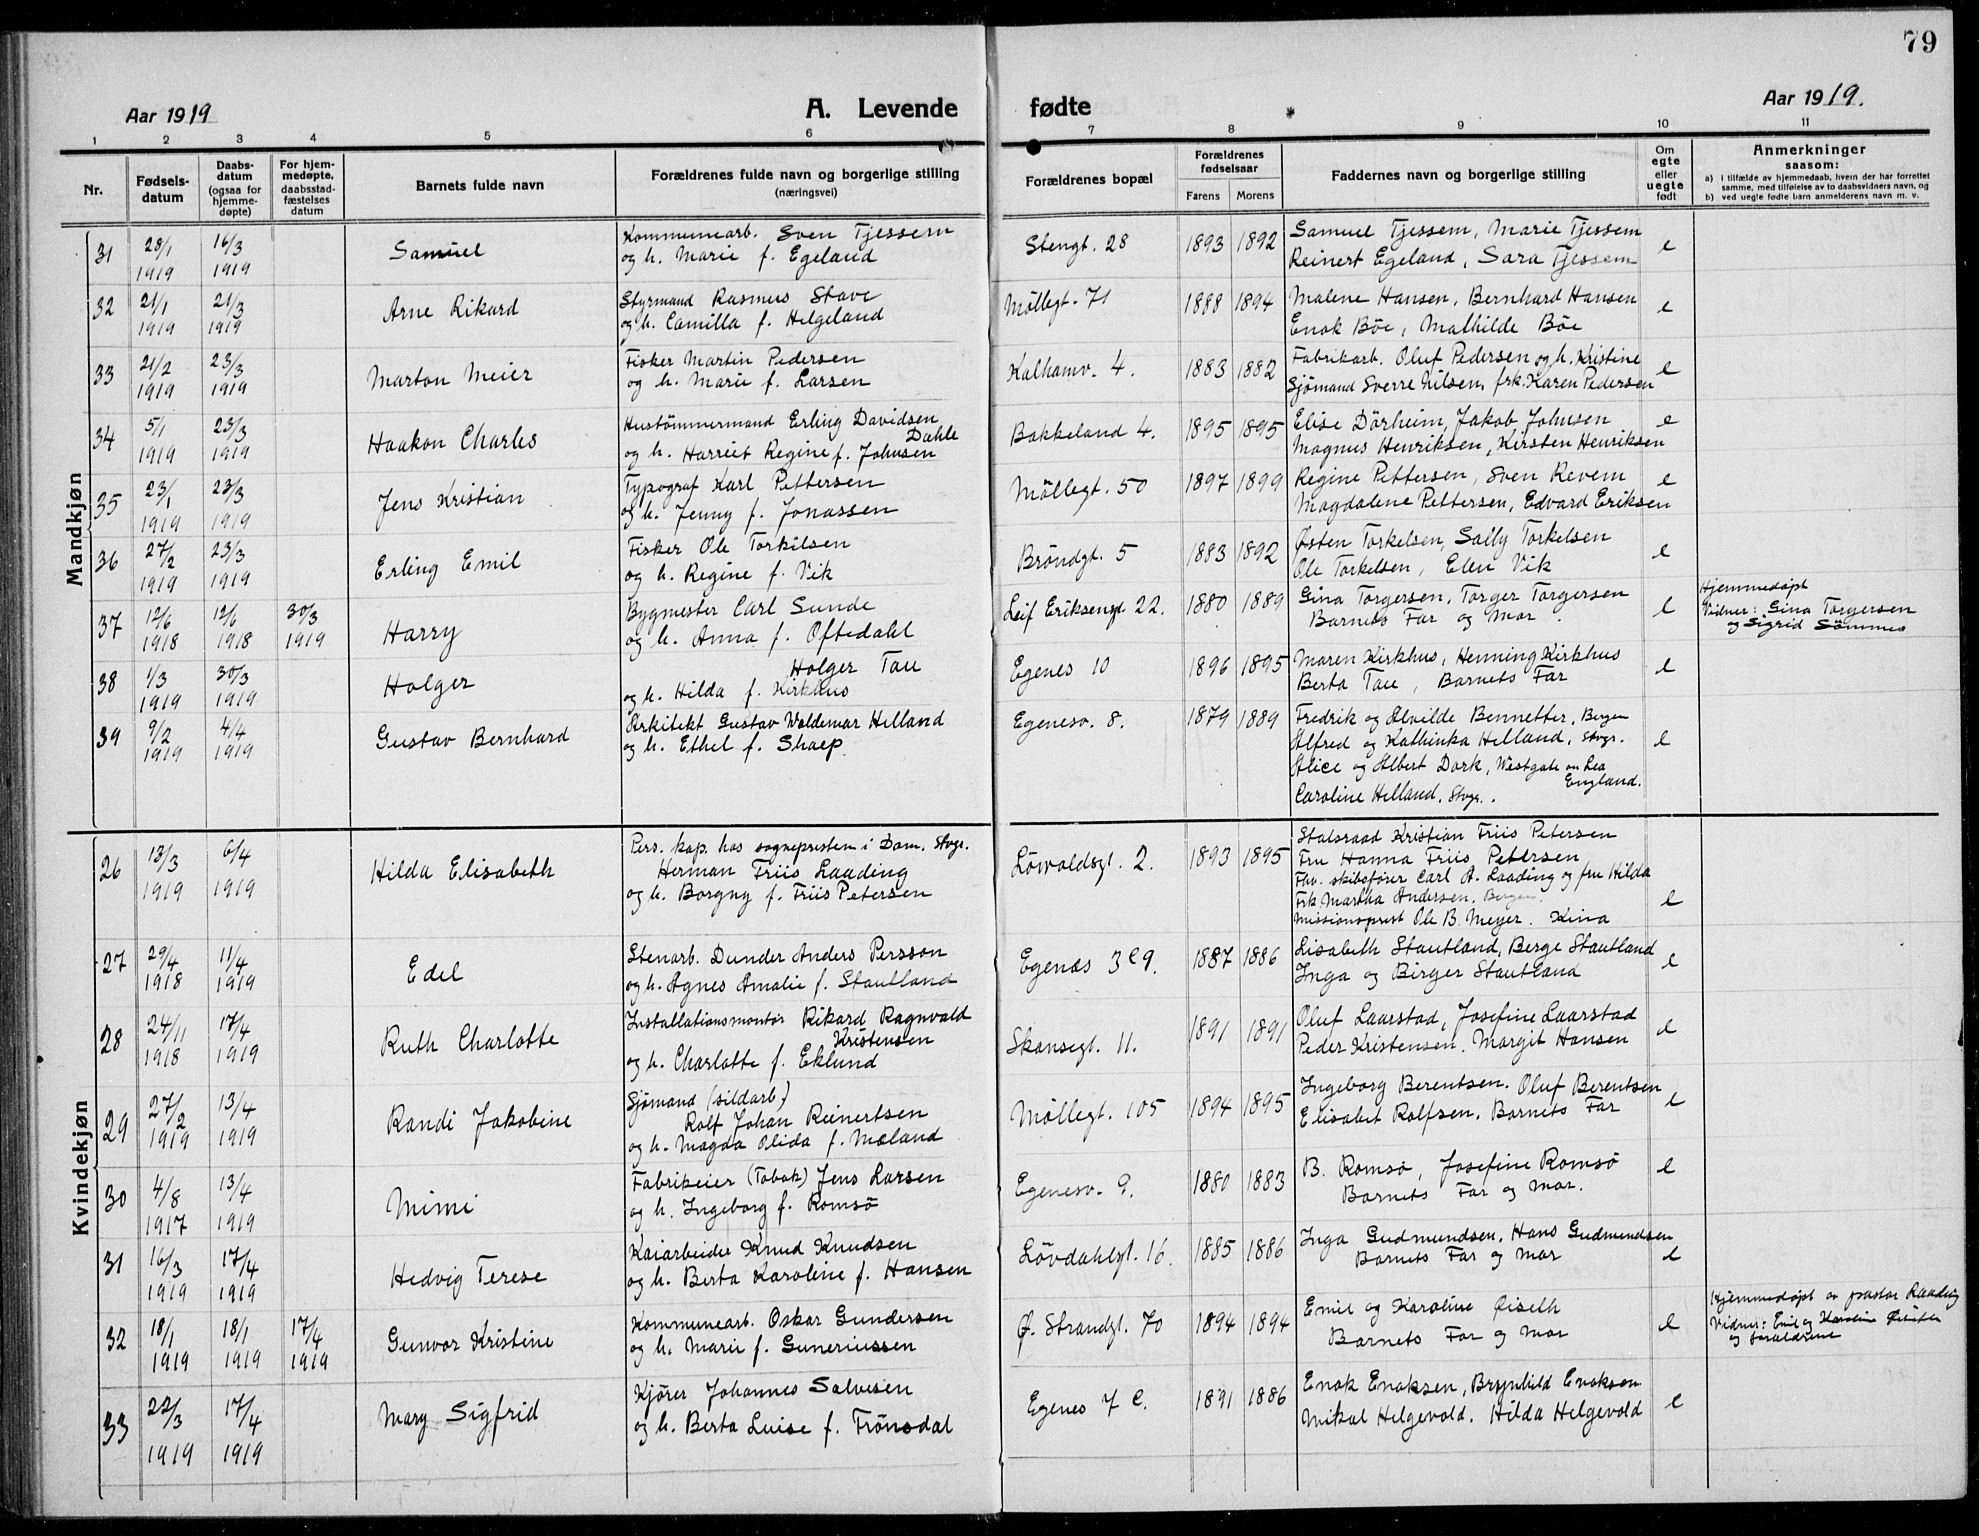 79
Aar 1919
A. Levende
fødte
Aar 1919.
1 2 3 4 5 6 7 8 9 10 11
Nr.
Fødsels-
datum
Daabs-
datum
(ogsaa for
hjemme-
døpte)
For hjem-
medøpte,
daabsstad-
fæstelses
datum
Barnets fulde navn
Forældrenes fulde navn og borgerlige stilling
(næringsvei)
Forældrenes bopæl
Forældrenes
fødselsaar
Farens Morens
Faddernes navn og borgerlige stilling
Om
egte
eller
uegte
født
Anmerkninger
saasom:
a) i tilfælde av hjemmedaab, hvem der har forrettet
samme, med tilføielse av to daabsvidners navn, og
b) ved uegte fødte barn anmelderens navn m. v.
Mandkjøn
31 28/1 1919 16/3 1919 Samuel
Kommunearb. Sven Tjessem
og h. Marie f. Egeland
Stengt. 28 1893 1892
Samuel Tjessem, Marie Tjessem
Reinert Egeland, Sara Tjessem
e
32 21/1 1919 21/3 1919 Arne Rikard
Styrmand Rasmus Stave
og h. Camilla f. Helgeland
Möllegt. 71 1888 1894
Malene Hansen, Bernhard Hansen
Enok Böe, Mathilde Böe
e
33 21/2 1919 23/3 1919 Marton Meier
Fisker Martin Pedersen
og h. Marie f. Larsen
Kalhamv. 4. 1883 1882
Fabrikarb. Oluf Pedersen og h. Kristine
Sjömand Sverre Nilsen, frk. Karen Pedersen
e
34 5/1 1919 23/3 1919 Haakon Charles
Hustömmermand Erling Davidsen
Dahle
og h. Harriet Regine f. Johnsen
Bakkeland 4. 1895 1895
Elise Dörheim, Jakob Johnsen
Magnus Henriksen, Kirsten Henriksen
e
35 23/1 1919 23/3 1919 Jens Kristian
Typograf Karl Pettersen
og h. Jenny f. Jonassen
Möllegt. 50 1897 1899
Regine Pettersen, Sven Revem
Magdalene Pettersen, Edvard Eriksen
e
36 27/2 1919 23/3 1919 Erling Emil
Fisker Ole Torkilsen
og h. Regine f. Vik
Bröndgt. 5 1883 1892
Østen Torkelsen, Sally Torkelsen
Ole Torkelsen, Elen Vik
e
37 12/6 1918 12/6 1918 30/3 1919 Harry
Bygmester Carl Sunde
og h. Anna f. Oftedahl
Leif Eriksensgt. 22. 1880 1889
Gina Torgersen, Torger Torgersen
Barnets Far og Mor.
e
Hjemmedöpt
Vidner: Gina Torgersen
og Sigrid Sömme
38 1/3 1919 30/3 1919 Holger
Holger Tau
og h. Hilda f. Kirkhus
Egenes 10 1896 1895
Maren Kirkhus, Henning Kirkhus
Berta Tau, Barnets Far
e
39 9/2 1919 4/4 1919 Gustav Bernhard
Arkitekt Gustav Waldemar Helland
og h. Ethel f. Sharp.
Egenesv. 8. 1879 1889
Fredrik og Alvilde Bennetter, Bergen
Alfred og Kathinka Helland, Stvgr.
Alice og Albert Dark, Westgate on Sea
England.
Caroline Helland, Stvgr.
e
Kvindekjøn
26 13/3 1919 6/4 1919 Hilda Elisabeth
Pers. kap. hos sognepresten i Dom. Stvgr.
Herman Friis Laading
og h. Borgny f. Friis Petersen
Lövoldsgt. 2. 1893 1895
Statsraad Kristian Friis Petersen
Fru Hanna Friis Petersen
Fhv. skibsfører Carl A. Laading og fru Hilda
Frk Martha Andersen. Bergen.
Missionsprest Ole B. Meyer. Kina
e
27 29/4 1918 11/4 1919 Edel
Stenarb. Dunder Anders Persson
og h. Agnes Amalie f. Stautland
Egenæs 3 C 9. 1887 1886
Lisabeth Stautland, Berge Stautland
Inga og Birger Stautland
e
28 24/11 1918 17/4 1919 Ruth Charlotte
Installationsmontør Rikard Ragnvald
Kristensen
og h. Charlotte f. Eklund
Skansegt. 11. 1891 1891
Oluf Laarstad, Josefine Laarstad
Peder Kristensen. Margit Hansen
e
29 27/2 1919 13/4 1919 Randi Jakobine
Sjömand (sildarb.)
Rolf Johan Reinertsen
og h. Magda Olida f. Mæland
Möllegt. 105 1894 1895
Ingeborg Berentsen. Oluf Berentsen
Elisabet Rolfsen. Barnets Far
e
30 4/8 1917 13/4 1919 Mimi
Fabrikeier (Tobak) Jens Larsen
og h. Ingeborg f. Romsö
Egenesv. 9. 1880 1883
B. Romsö, Josefine Romsö
Barnets Far og Mor.
e
31 16/3 1919 17/4 1919 Hedvig Terese
Kaiarbeider Knud Knudsen
og h. Berta Karoline f. Hansen
Lövdahlsgt. 16. 1885 1886
Inga Gudmundsen, Hans Gudmundsen
Barnets Far og Mor
e
32 18/1 1919 18/1 1919 17/4 1919 Gunvor Kristine
Kommunearb. Oskar Gundersen
og h. Marie f. Guneriussen
Ø. Strandgt. 70 1894 1894
Emil og Karoline Øiseth
Barnets Far og Mor
e
Hjemmedöpt av pastor Laading
Vidner: Emil og Karoline Øiseth
og forældrene
33 22/3 1919 17/4 1919 Mary Sigfrid
Kjörer Johannes Salvesen
og h. Berta Luise f. Trönsdal
Egenes 7 C. 1891 1886
Enok Enoksen, Brynhild Enoksen
Mikal Helgevold. Hilda Helgevold
e